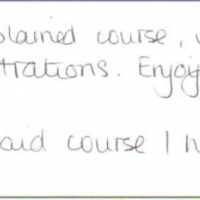 plained course,
trations. Enjoy
aid course I h